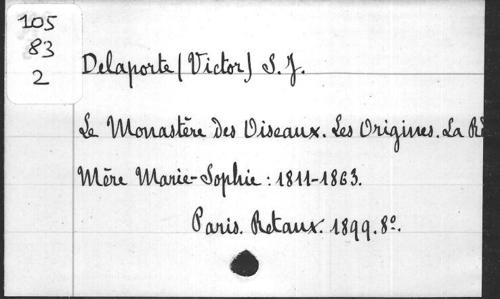 105
83
2
Delaporte (Victor) S. J.
Le Monastère des Oiseaux. Les Origines. La
Mère Marie-Sophie : 1811-1863.
Paris. Retaux. 1899. 8º.